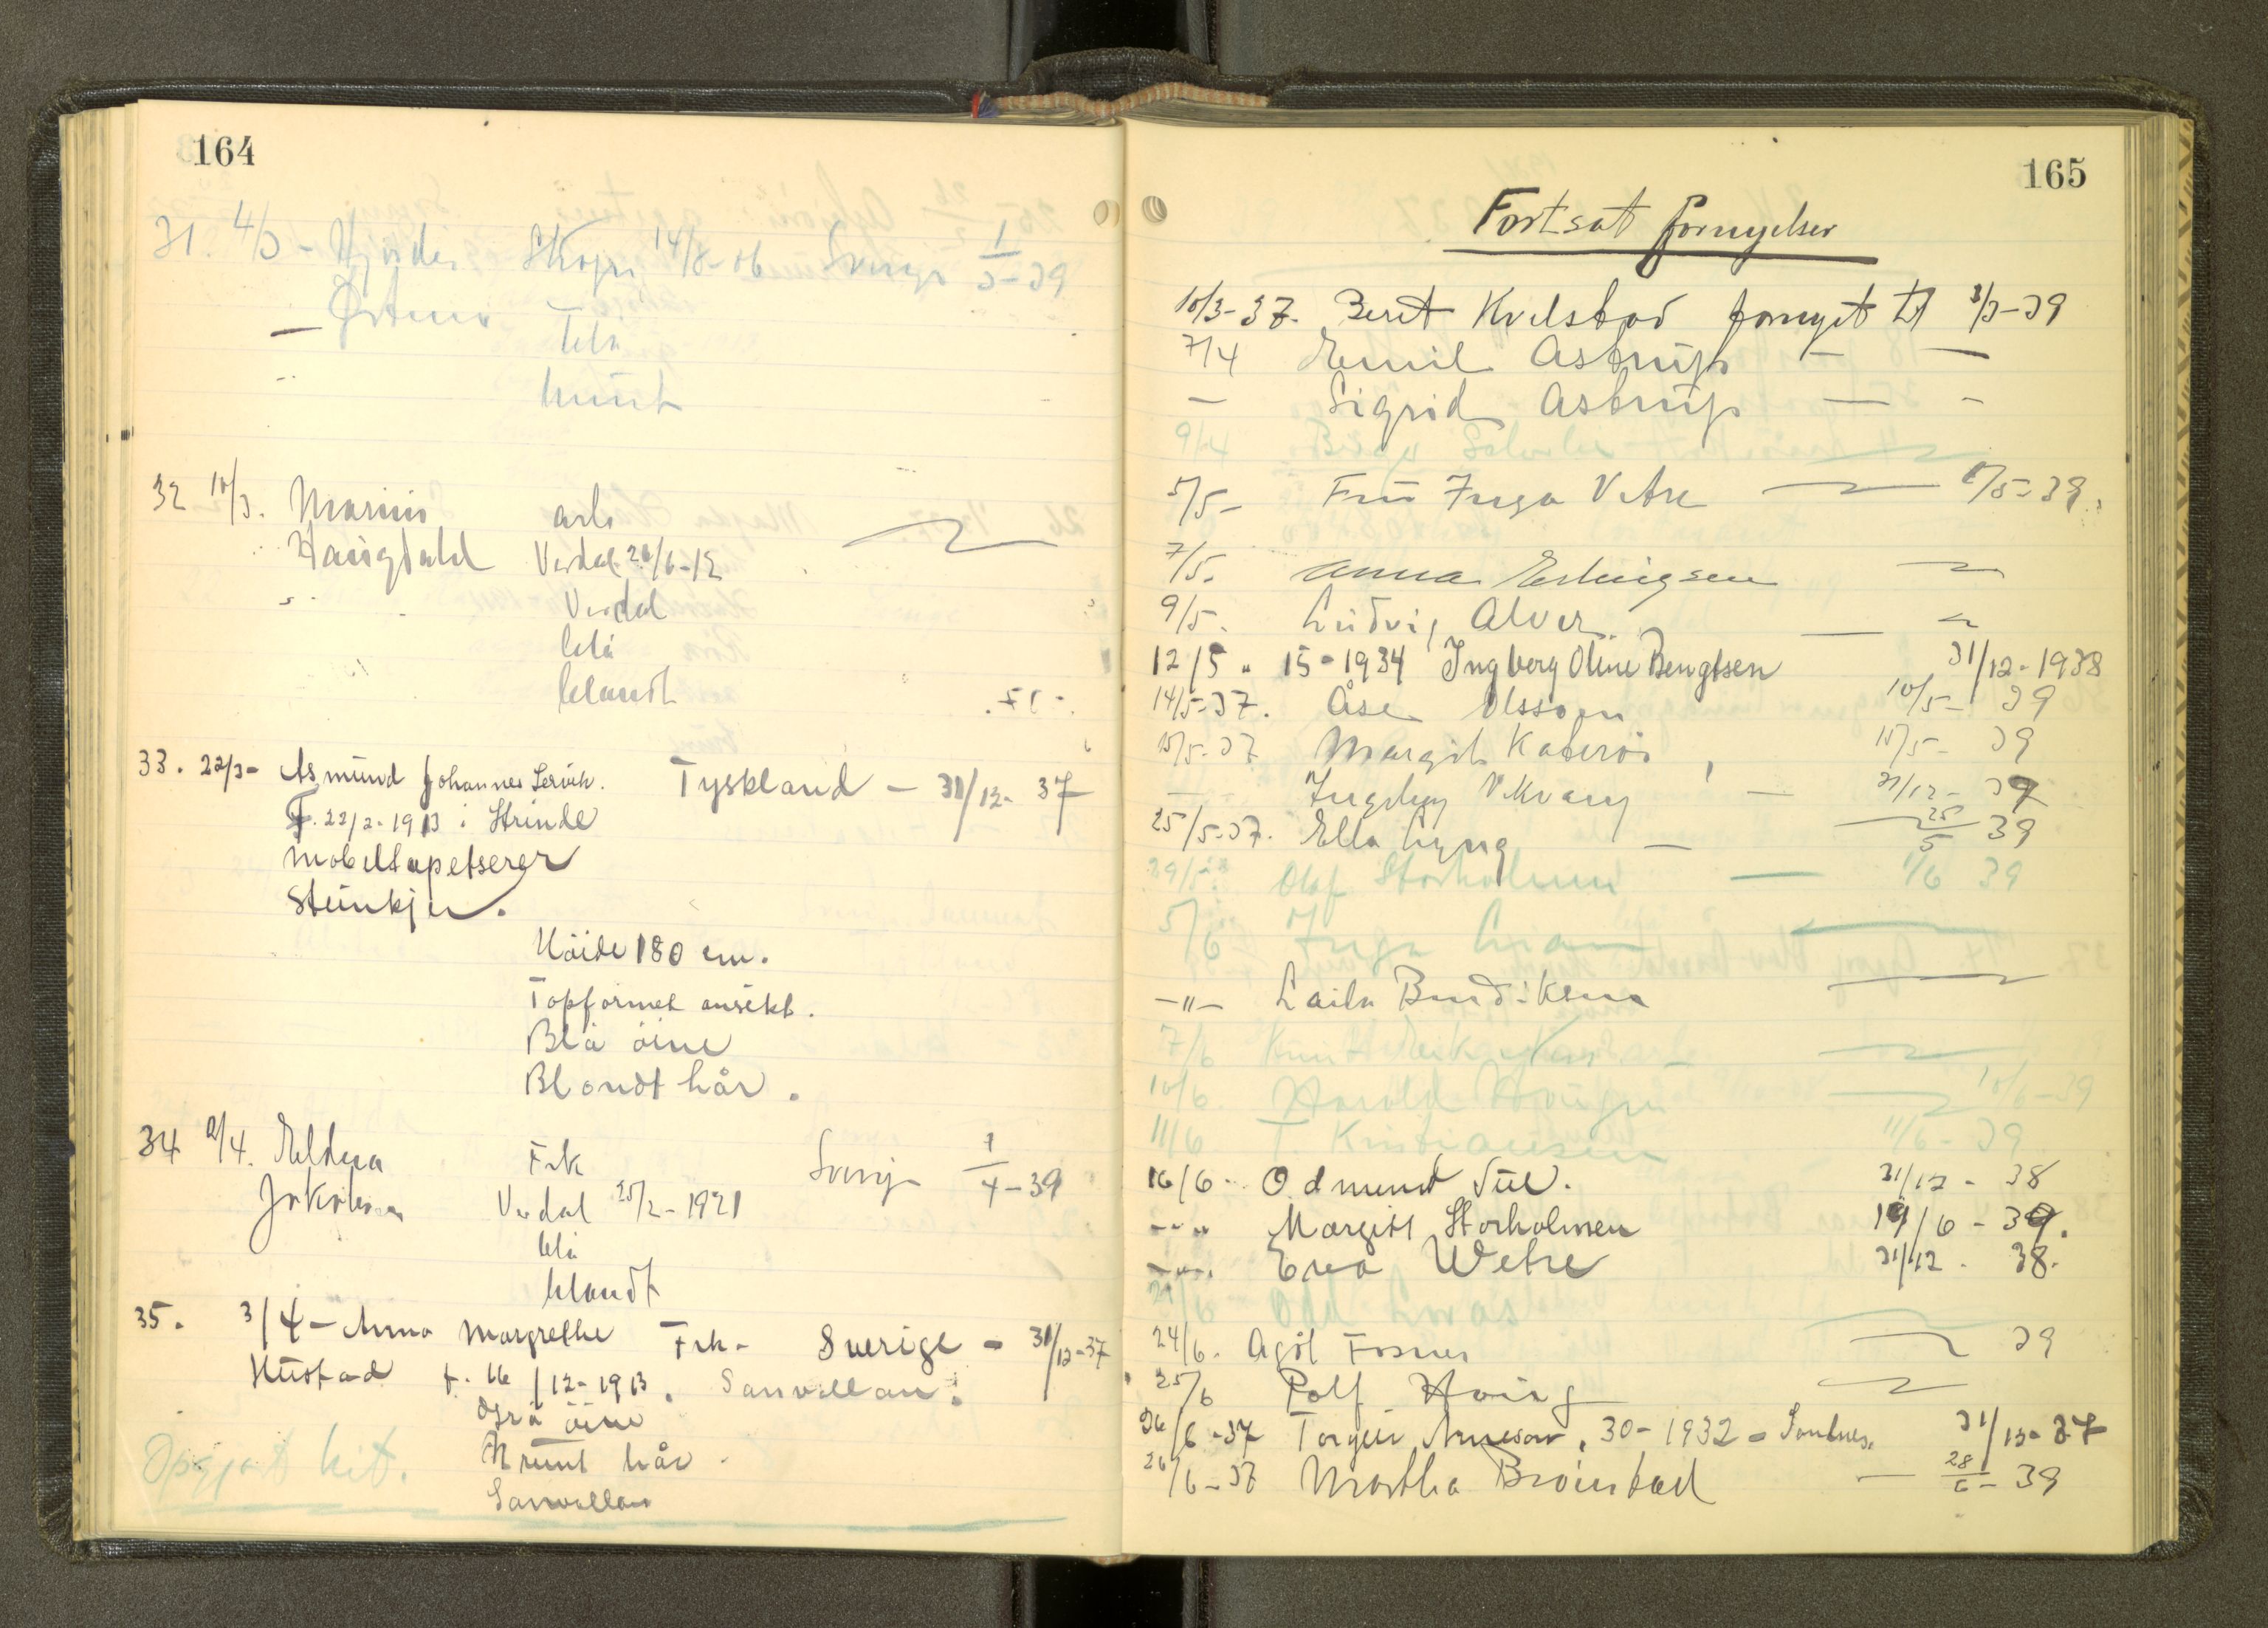 164
31. 4/3 - Hjördis Skogn 14/8-06 Sverige 1/3-39
blå
brunt
32 10/3. Marius arb
Haugdahl Verdal. 26/6-12
Verdal
blå
blondt
33. 22/3- Asmund Johannes Lervik. Tyskland - 31/12- 37
F. 22/2-1913 i Strinde
møbeltapetserer
Steinkjer.
Höide 180 cm.
Topformet ansikt.
Blå öine
Blondt hår.
34 2/4. Eldera Frk Sverige 1/4-39
Jakobsen Verdal 25/2-1921
blå
blondt
35. 3/4 - Anna Margrethe Frk- Sverige - 31/12-37
Hustad f. 16/12-1913. Sanvollan.
Grå öine
Brunt hår.
Opgjort hit. Sanvollan
165
Fortsat fornyelser
10/3-37. Berit Kvelstad fornyet til 3/3-39
7/4 Emil Astrup — —
— Sigrid Astrup — -
9/4
5/5- Fru Inga Vitre /5-39.
7/5. Anna Erlingsen
9/5. Ludvig Alver —
12/5 " 15-1934 Ingberg Oline Bengtsen 31/12-1938
14/5-37. Åse Olsson 10/5- 39
15/5-37 Margit Kaberöi 15/5- 39
— Ingebrg Vikvang — 31/12- 39
25/5-37. Ella Lyng — 25/5 39
29/5 Olaf Storholmen — 1/6 39
5/6 Inga Lian
-"- Laila Bendiksen
7/6 Knut
10/6. Harald Haugan 10/6-39
11/6 T. Kristiansen 11/6- 39
16/6- Odmund Sul. 31/12- 38
-"- Margit Storholmen 19/6-39.
-"- Eva Wetre 31/12. 38.
/6 Odd Loras
24/6. Agöt Fosnes 39
25/6 Rolf Hoing
26/6-37 Torgeir Arneson, 30-1932 - 31/12-37
26/6-37 Martha Bröinstad — 28/6-39